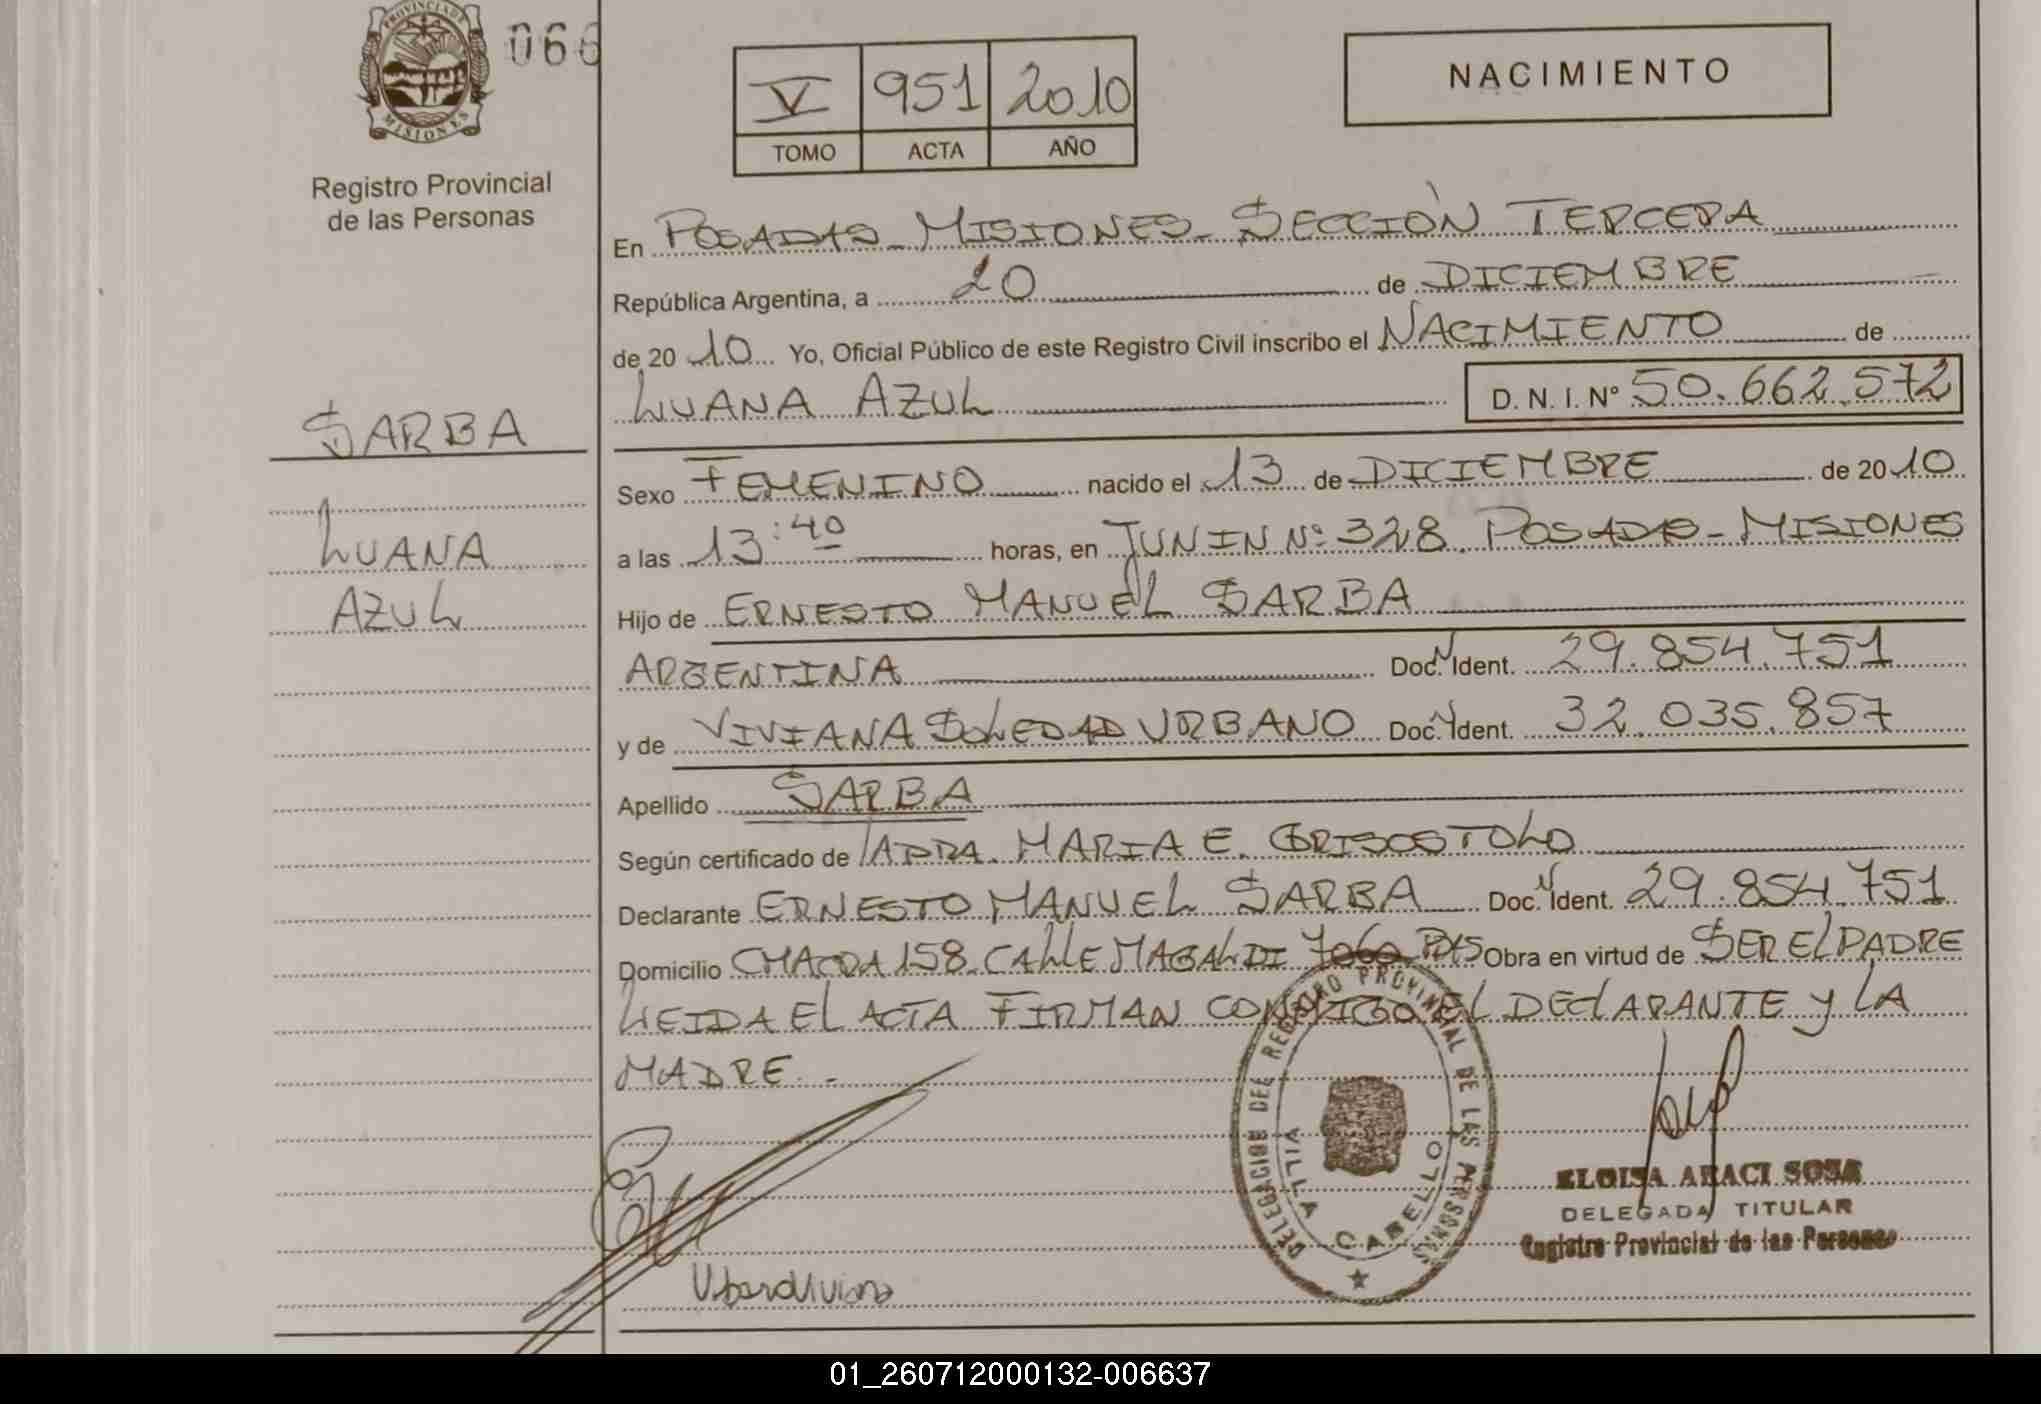 PROVINCIA DE
MISIONES
066
Registro Provincial
de las Personas
V 951 2010
TOMO ACTA AÑO
NACIMIENTO
En POSADAS - MISIONES - SECCIÓN TERCERA
República Argentina, a 20 de DICIEMBRE
de 2010 Yo, Oficial Público de este Registro Civil inscribo el NACIMIENTO de
LUANA AZUL D. N. I. Nº 50.662.572
SARBA
LUANA
AZUL
Sexo FEMENINO nacido el 13 de DICIEMBRE de 2010
a las 13:40 horas, en JUNIN Nº 328. POSADAS - MISIONES
Hijo de ERNESTO MANUEL SARBA
ARGENTINA Doc. N Ident. 29.854.751
y de VIVIANA SOLEDAD URBANO Doc. N Ident. 32.035.857
Apellido SARBA
Según certificado de MARIA E. GRISOSTOLO
Declarante ERNESTO MANUEL SARBA Doc. N Ident. 29.854.751
Domicilio CHACRA 158. CALLE MAGALDI Obra en virtud de SER EL PADRE
LEIDA EL ACTA FIRMAN CONMIGO EL DECLARANTE Y LA
MADRE. -
DELEGACION DEL REGISTRO PROVINCIAL DE LAS PERSONAS
VILLA CABELLO
ELOISA ARACI SOSA
DELEGADA TITULAR
Registro Provincial de las Personas
01_260712000132-006637